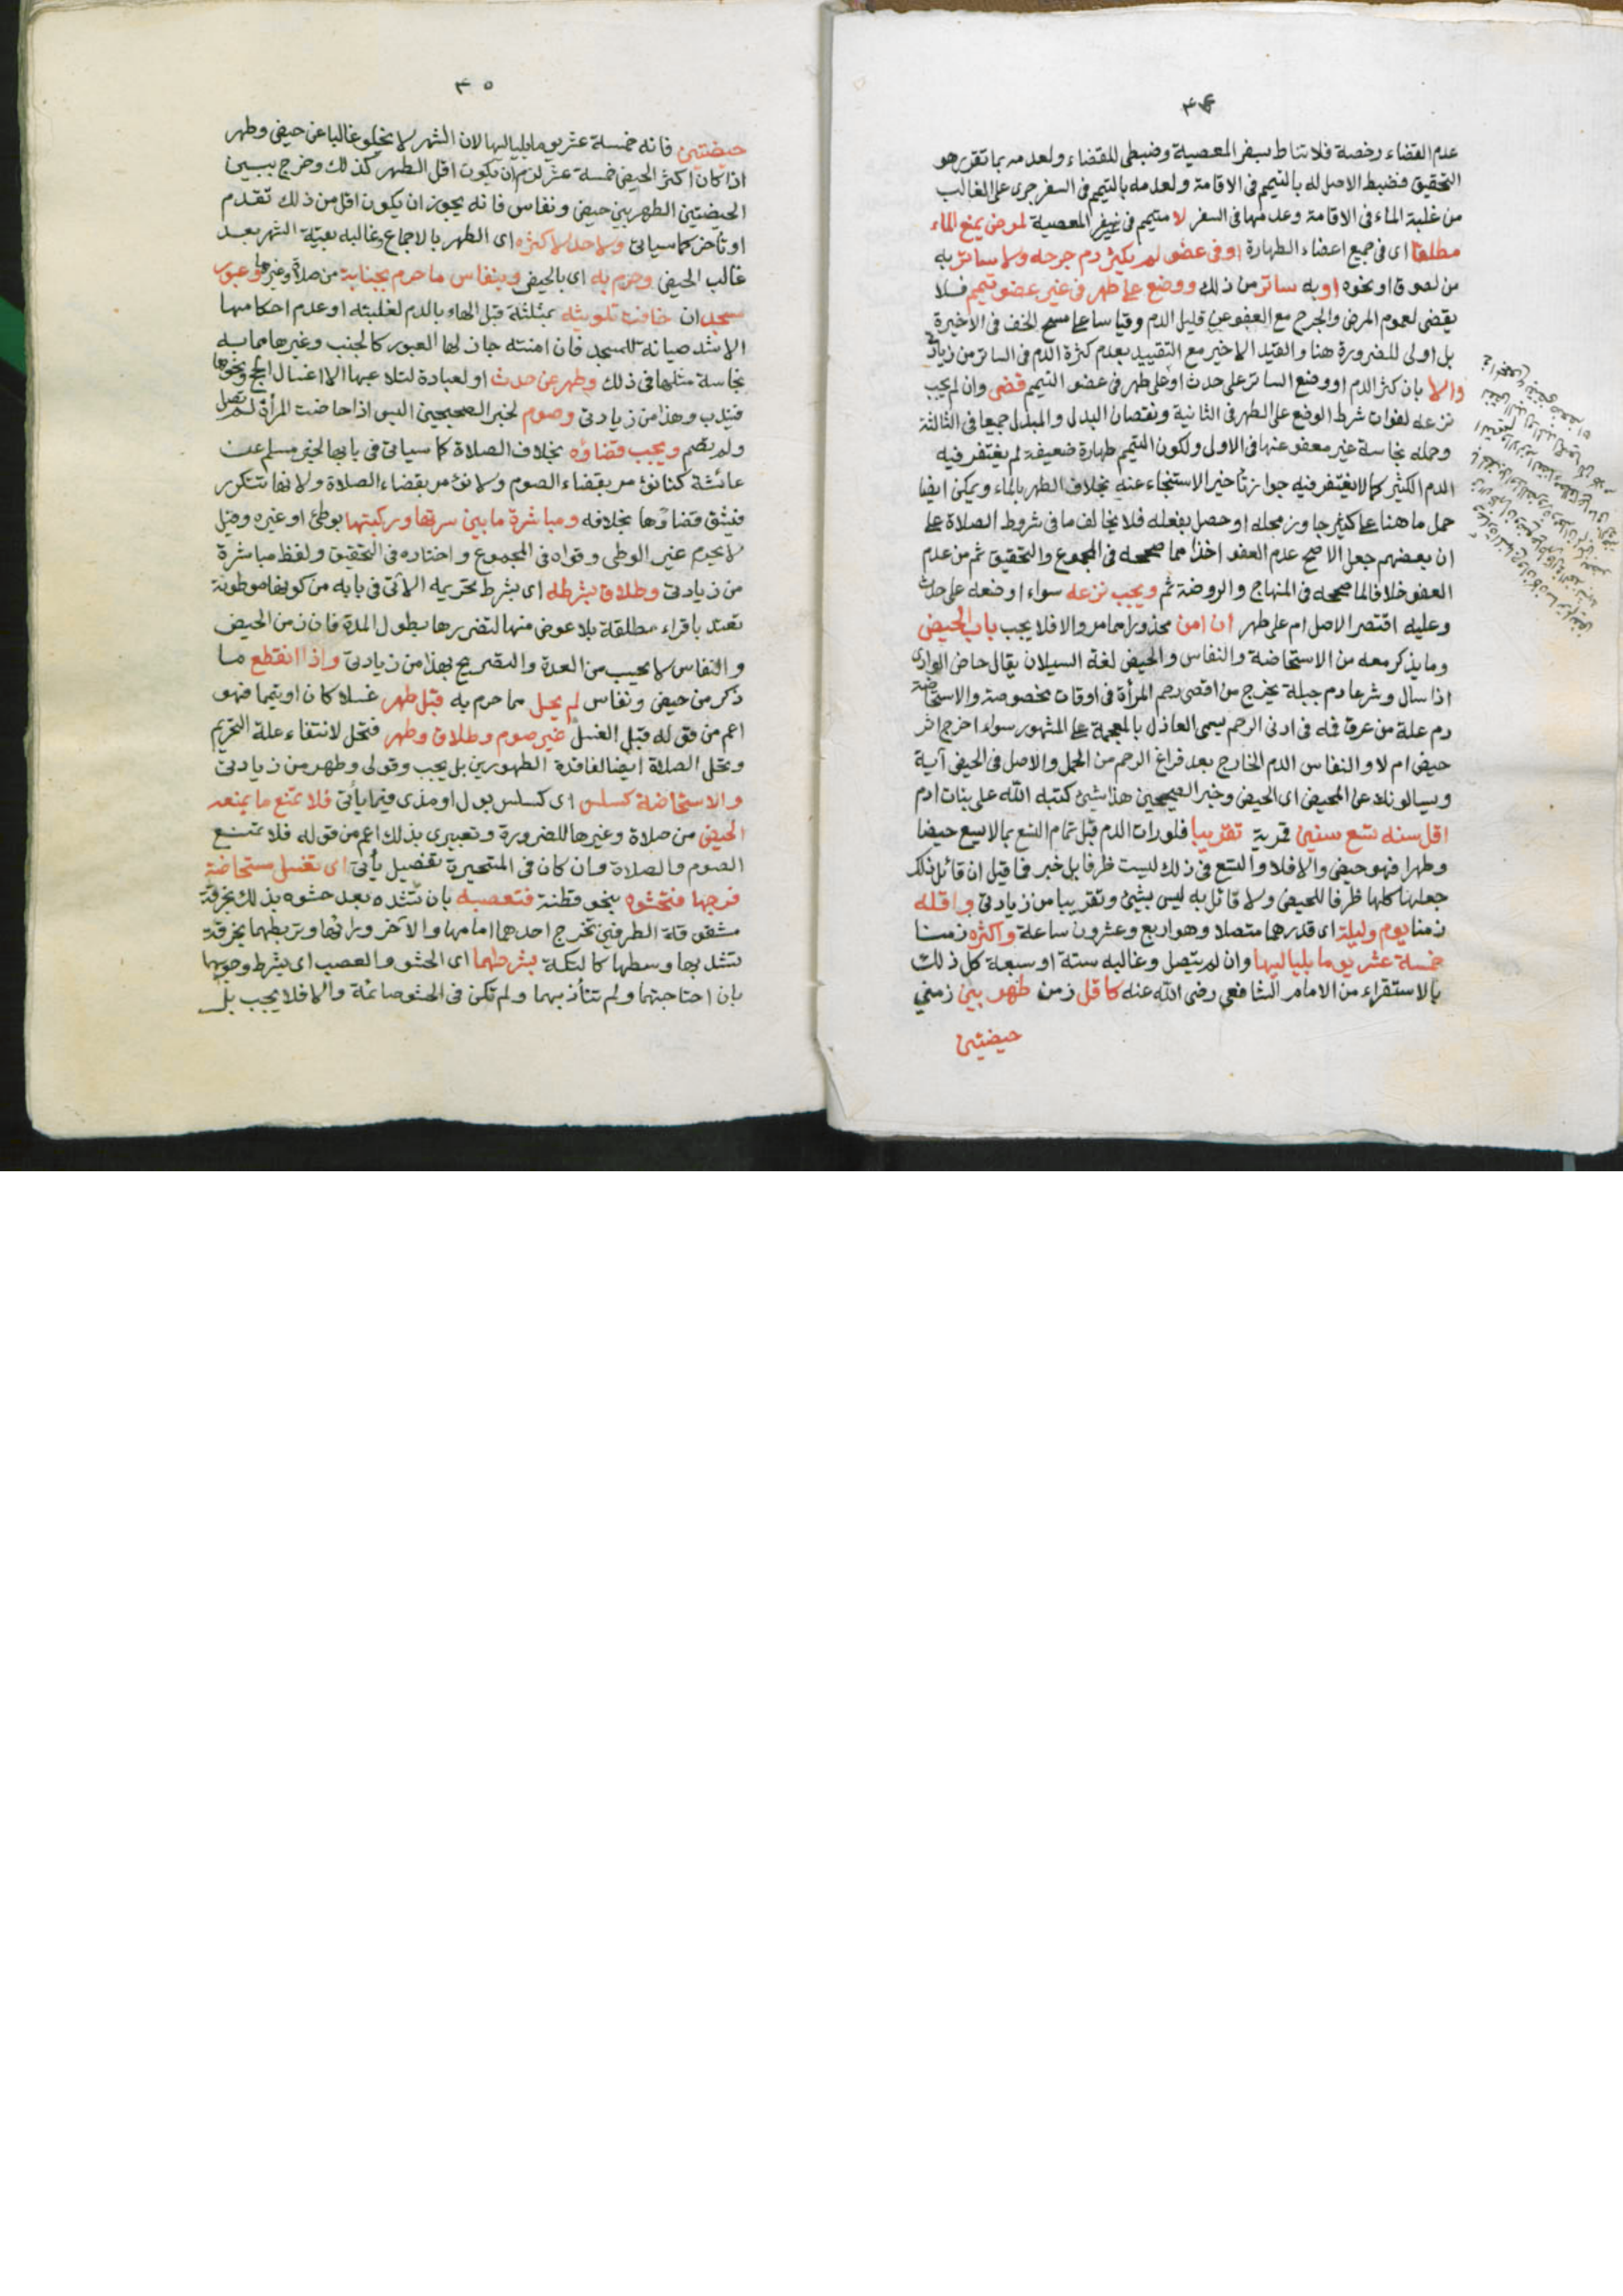 ٣٤
عدم القضاء رخصة فلا تناط بسفر المعصية وضبطى للقضاء ولعدمه بما تقرر هو
التحقيق فضبط الاصل له بالتيمم فى الاقامة ولعدمه بالتيمم فى السفر جرى على الغالب
من غلبة الماء فى الاقامة وعدمها فى السفر لا متيمم فى غير سفر المعصية لمرض يمنع الماء
مطلقا اى فى جميع اعضاء الطهارة او فى عضو لم يكثر دم جرحه ولا ساتر به
من لصوق او نحوه او به ساتر من ذلك ووضع على طهر فى غير عضو تيمم فلا
يقضى لعموم المرض والجرح مع العفو عن قليل الدم وقياسا على مسح الخف فى الاخيرة
بل اولى للضرورة هنا والقيد الاخير مع التقييد بعدم كثرة الدم فى الساتر من زيادتى
والا بان كثر الدم او وضع الساتر على حدث او على طهر فى عضو التيمم قضى وان لم يجب
نزعه لفوات شرط الوضع على الطهر فى الثانية ونقصان البدل والمبدل جميعا فى الثالثة
وحمله نجاسة غير معفو عنها فى الاول ولكون التيمم طهارة ضعيفة لم يغتفر فيه
الدم الكثير كما لا يغتفر فيه جواز تأخير الاستنجاء عنه بخلاف الطهر بالماء ويمكن ايضا
حمل ما هنا على كثير جاوز محله او حصل بفعله فلا يخالف ما فى شروط الصلاة على
ان بعضهم جعل الاصح عدم العفو اخذا مما صححه فى المجموع والتحقيق ثم من عدم
العفو خلافا لما صححه فى المنهاج والروضة ثم ويجب نزعه سواء اوضعه على حدث
وعليه اقتصر الاصل ام على طهر ان امن محذورا مما مر والا فلا يجب باب الحيض
وما يذكر معه من الاستحاضة والنفاس والحيض لغة السيلان يقال حاض الوادى
اذا سال وشرعا دم جبلة يخرج من اقصى رحم المرأة فى اوقات مخصوصة والاستحاضة
دم علة من عرق فمه فى ادنى الرحم يسمى العاذل بالمعجمة على المشهور سواء اخرج اثر
حيض ام لا والنفاس الدم الخارج بعد فراغ الرحم من الحمل والاصل فى الحيض آية
ويسالونك عن المحيض اى الحيض وخبر الصحيحين هذا شيئ كتبه الله على بنات ادم
اقل سنه تسع سنين قمرية تقريبا فلو رات الدم قبل تمام التسع بما لا يسع حيضا
وطهرا فهو حيض والا فلا والتسع فى ذلك ليست ظرفا بل خبر فما قيل ان قائل ذلك
جعلها كلها ظرفا للحيض ولا قائل به ليس بشيئ وتقريبا من زيادتى واقله
زمنا يوم وليلة اى قدرهما متصلا وهو اربع وعشرون ساعة واكثره زمنا
خمسة عشر يوما بلياليها وان لم يتصل وغالبه ستة او سبعة كل ذلك
بالاستقراء من الامام الشافعى رضى الله عنه كاقل زمن طهر بين زمنى
حيضتين
٣٥
حيضتين فانه خمسة عشر يوما بلياليها لان الشهر لا يخلو غالبا عن حيض وطهر
اذا كان اكثر الحيض خمسة عشر لزم ان يكون اقل الطهر كذلك وخرج ببين
الحيضتين الطهر بين حيض ونفاس فانه يجوز ان يكون اقل من ذلك تقدم
او تأخر كما سيأتى ولا حد لاكثره اى الطهر بالاجماع وغالبه بقية الشهر بعد
غالب الحيض وحرم به اى بالحيض وبنفاس ما حرم بجنابة من صلاة وغيرها وعبور
مسجد ان خافت تلويثه بمثلثة قبل الهاء بالدم لغلبته او عدم احكامها
الا شد صيانة للمسجد فان امنته جاز لها العبور كالجنب وغيرها ممن به
نجاسة مثلها فى ذلك وطهر عن حدث او لعبادة لتلاعبها الا اغسال الحج ونحوها
فيندب وهذا من زيادتى وصوم لخبر الصحيحين اليس اذا حاضت المرأة لم تصل
ولم تصم ويجب قضاؤه بخلاف الصلاة كما سيأتى فى بابها لخبر مسلم عن
عائشة كنا نؤمر بقضاء الصوم ولا نؤمر بقضاء الصلاة ولانها تتكرر
فيشق قضاؤها بخلافه ومباشرة ما بين سرتها وركبتها بوطئ او غيره وقيل
لا يحرم غير الوطى وقواه فى المجموع واختاره فى التحقيق ولفظ مباشرة
من زيادتى وطلاق بشرطه اى بشرط تحريمه الاتى فى بابه من كونها موطوئة
تعتد باقراء مطلقة بلا عوض منها لتضررها بطول المدة فان زمن الحيض
والنفاس لا يحسب من العدة والتصريح بهذا من زيادتى واذا انقطع ما
ذكر من حيض ونفاس لم يحل مما حرم به قبل طهر غسلا كان او تيمما فهو
اعم من قوله قبل الغسل غير صوم وطلاق وطهر فتحل لانتفاء علة التحريم
وتحل الصلاة ايضا لفاقدة الطهورين بل يجب وقولى وطهر من زيادتى
والاستحاضة كسلس اى كسلس بول او مذى فيما يأتى فلا تمنع ما يمنعه
الحيض من صلاة وغيرها للضرورة وتعبيرى بذلك اعم من قوله فلا تمنع
الصوم والصلاة وان كان فى المتحيرة تفصيل يأتى اى تغسل مستحاضة
فرجها فتحشوه بنحو قطنة فتعصبه بان تشده بعد حشوه بذلك بخرقة
مشقوقة الطرفين تخرج احدهما امامها والآخر ورائها وتربطهما بخرقة
تشد بها وسطها كالتكة بشرطهما اى الحشو والعصب اى بشرط وجوبهما
بان احتاجتهما ولم تتأذ بهما ولم تكن فى الحشو صائمة والا فلا يجب بل